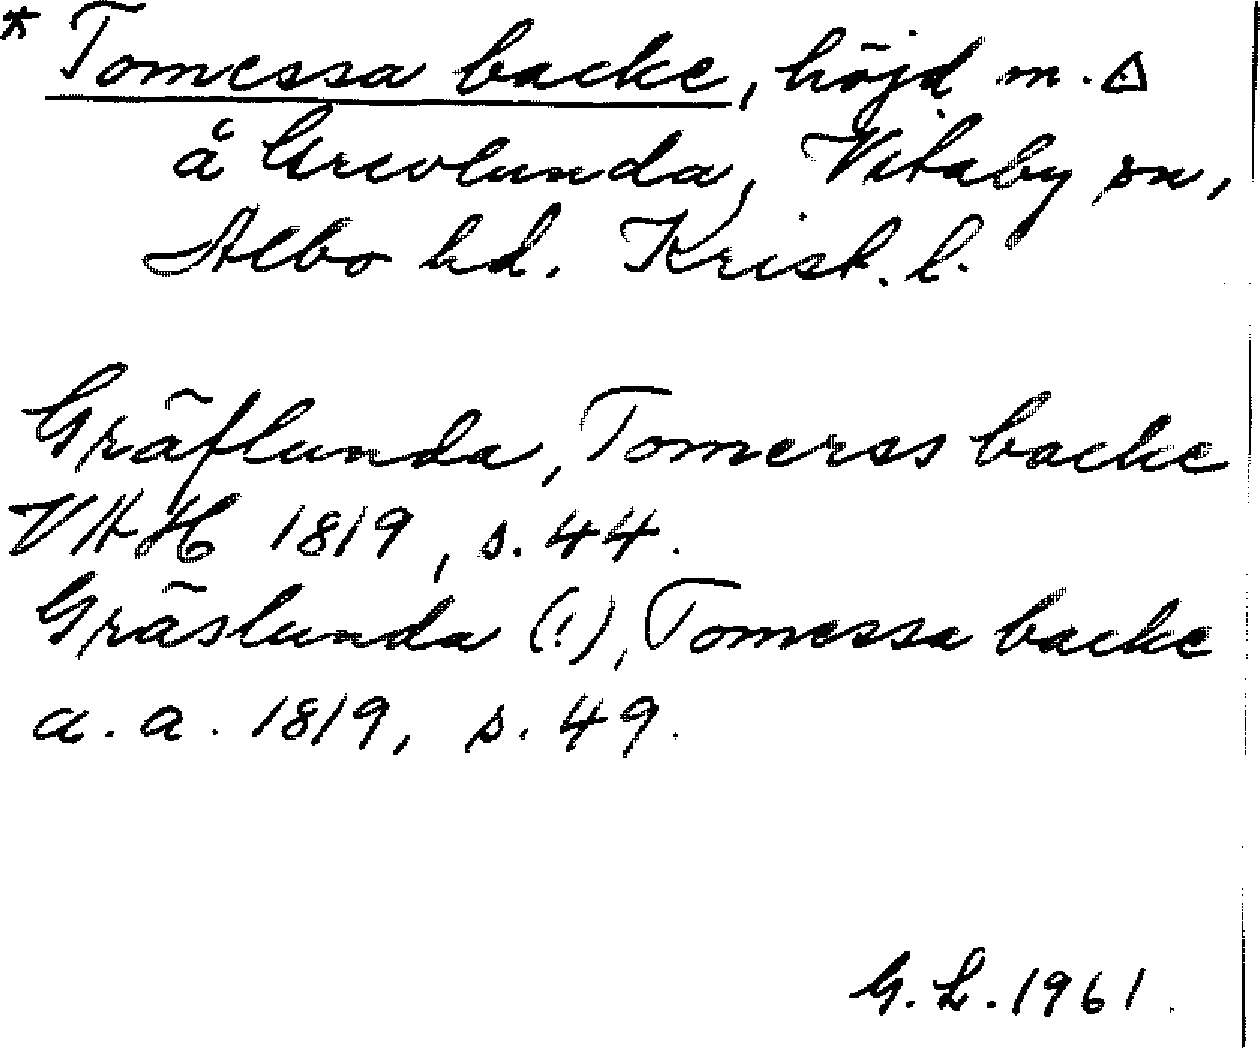 * Tomessa backe, höjd m. △
å Grevlunda, Vitaby sn,
Albo hd. Krist. l.
Gräflunda, Tomerss backe
VAH 1819, s. 44.
Gräslunda (!), Tomessa backe
a. a. 1819, s. 49.
G. L. 1961.